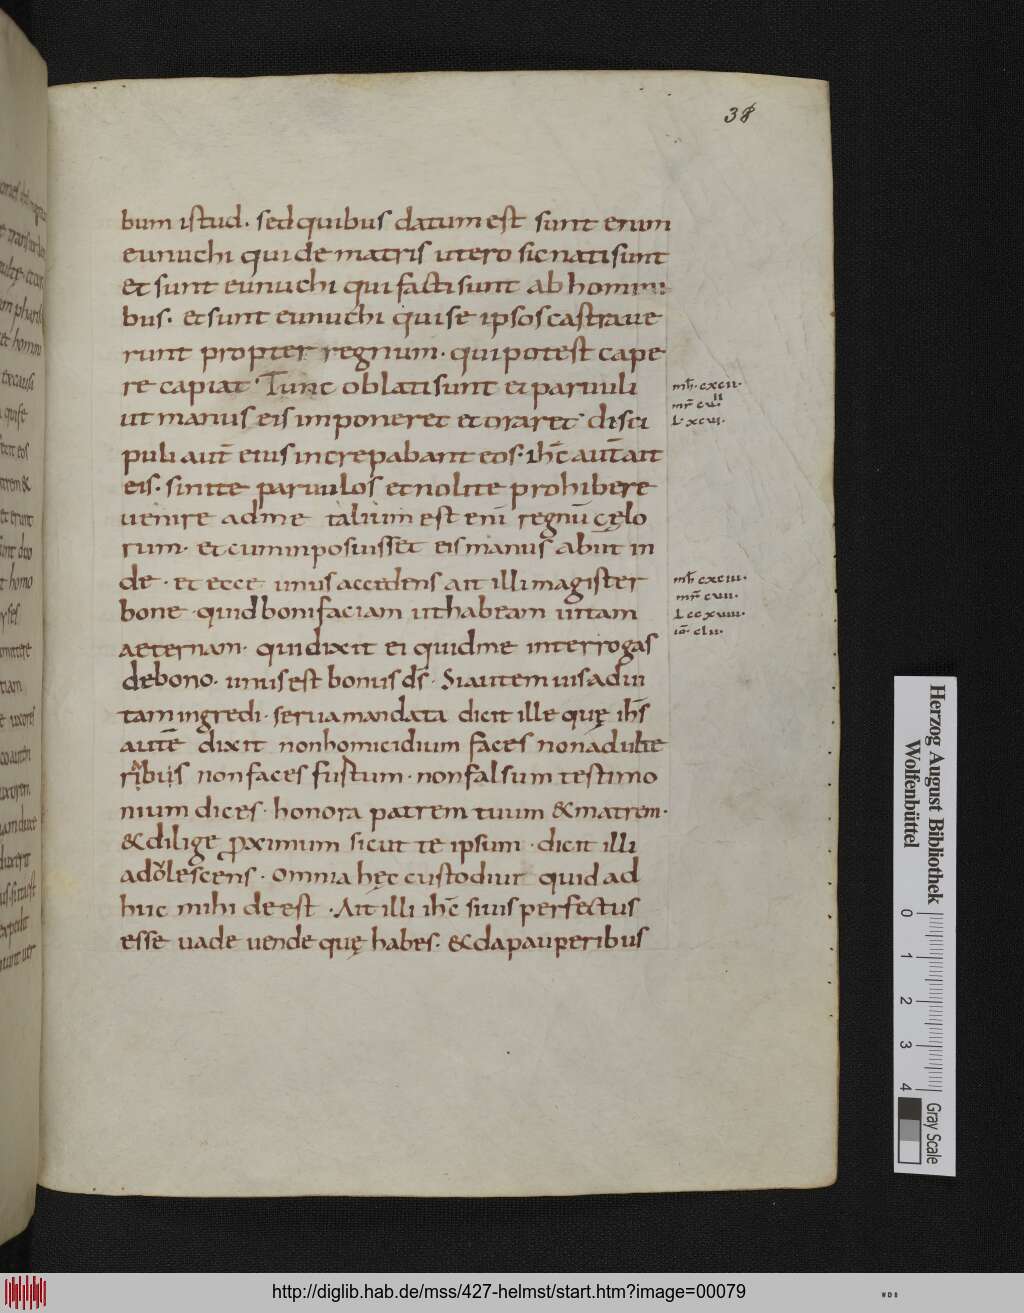 38
bum istud· sed quibus datum est sunt enim
eunuchi qui de matris utero sic nati sunt
et sunt eunuchi qui facti sunt ab homini
bus· et sunt eunuchi qui se ipsos castraue
runt propter regnum· qui potest cape
re capiat· Tunc oblati sunt ei paruuli
ut manus eis imponeret et oraret· disci
puli aut̄ eius increpabant eos· ih̄c aut̄ ait
eis· sinite paruulos et nolite prohibere
uenire ad me talium est eni regnū cęlo
rum· et cum inposuisset eis manus abiit in
de· et ecce unus accedens ait illi magister
bone quid boni faciam ut habeam uitam
aeternam· qui dixit ei quid me interrogas
de bono· unus est bonus ds̄· Si autem uis ad ui
tam ingredi· serua mandata dicit ille quę ih̄s
autē dixit non homicidium faces non adulte
ribus non faces furtum· non falsum testimo
nium dices· honora patrem tuum & matrem·
& dilige proximum sicut te ipsum· dicit illi
adolescens· omnia hęc custodiui quid ad
huc mihi de est· Ait illi ih̄c si uis perfectus
esse uade uende quę habes· & da pauperibus
mh̄· cxcii·
mr̄ cui·
L· xcui·
mh̄ cxciii·
mr̄ cuii·
L ccxuiii·
iō· clii·
Herzog August Bibliothek
Wolfenbüttel
0 1 2 3 4
Gray Scale
http://diglib.hab.de/mss/427-helmst/start.htm?image=00079